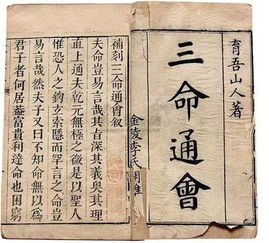 育吾山人著
三命通會
金陵李氏
補刻三命通會叙
夫命豈易言哉其旨深其義奧其理
直上通夫乾元無極之後是以聖人
惟恐人之鈎玄索隱而罕言之命豈
易言哉然夫子又曰不知命無以為
君子者何居蓋富貴利達命也困窮